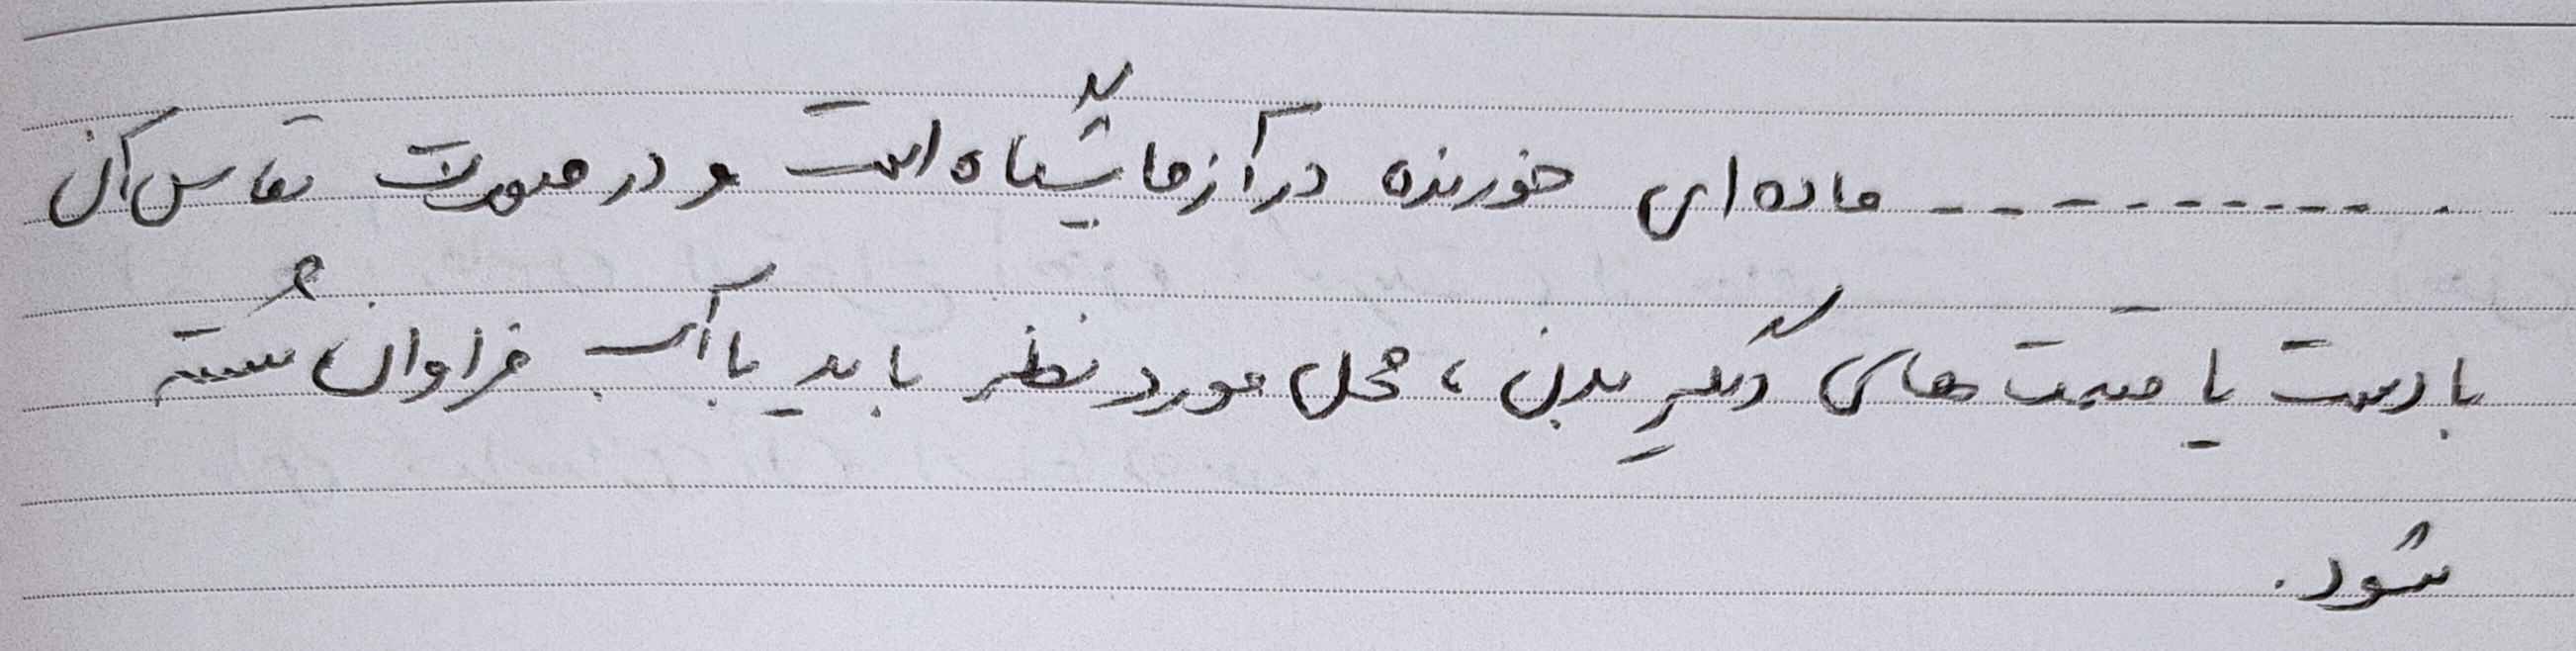 .......... ماده ای خورنده در آزمایشگاه است و در صورت تماس آن
با دست یا قسمت های دیگرِ بدن، محل مورد نظر باید با آب فراوان شُسته
شود.